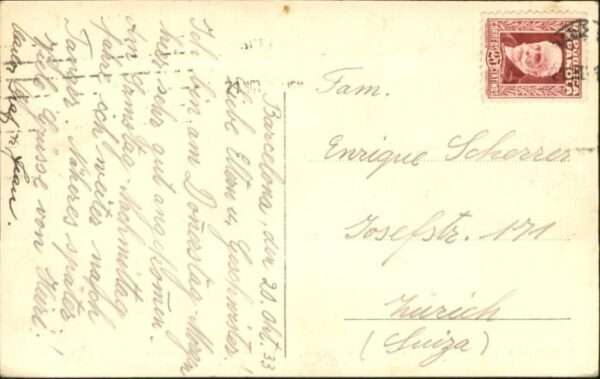 Barcelona, den 20. Okt. 33
Liebe Eltern u. Geschwister!
Ich bin am Donnestag-Morgen
hier sehr gut angekommen.
Am Samstag-Nachmittag
fahre ich weiter nach
Tanger. Näheres später!
Viele Grüsse von
Fam.
Enrique Scherrer
Josefstr. 171
Zürich
(Suiza)
REPUBLICA
ESPAÑOLA